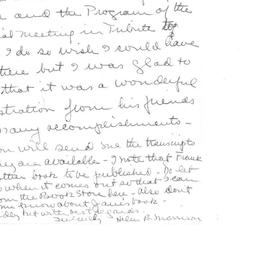 and the Program of the
Meeting in Tribute to
I do so wish I could have
there but I was glad to
that it was a wonderful
stration from his friends
many accomplishments -
you will send me the transcripts
they are available - I note that Frank
book to be published - Do let
when it comes out so that I can
from the Book Store here - Also don't
know about Janie's book -
but with best regards -
Sincerely Helen B.